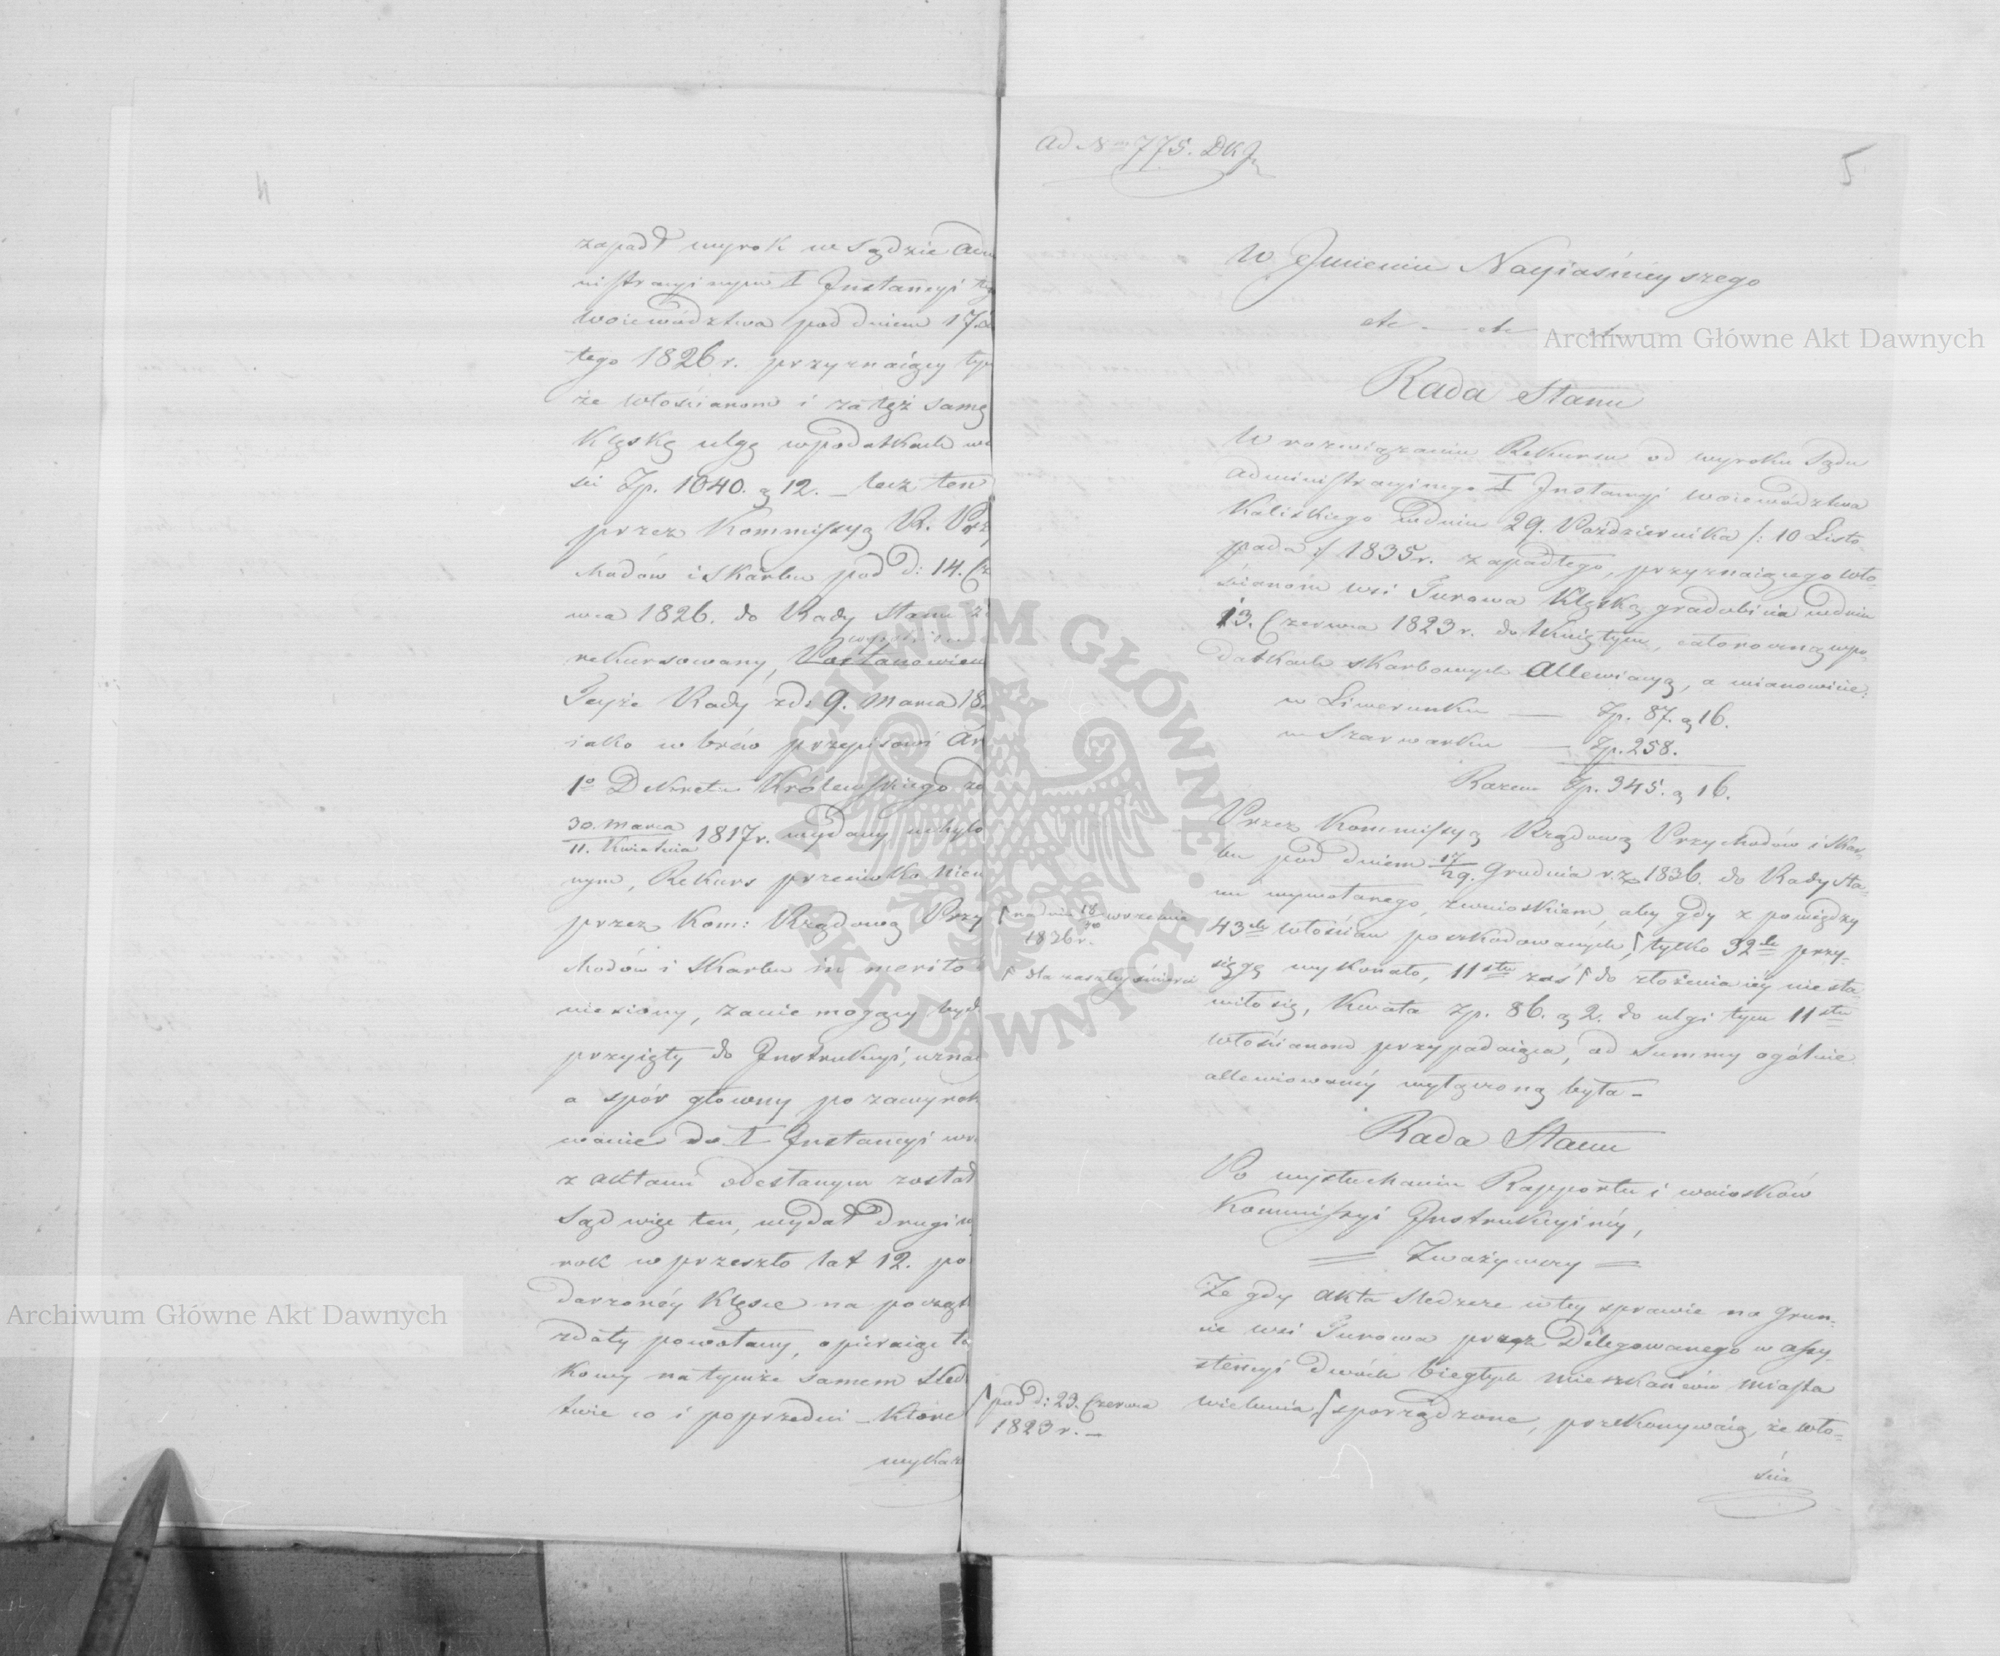 zapadł wyrok w Sądzie Adm
nistracyinym I Instancyi te
Woiewództwa pod dniem 17 Lu
tego 1826 r. przyznaiący tym
że włościanom i za też samę
Klęskę ulgę w podatkach w
ści Zp. 1040. g 12. — lecz ten
przez Kommissyą R. Przy
chodów i Skarbu pod d: 14. Cz
wca 1826. do Rady Stanu za
rekursowany, Postanowieniem
Teyże Rady z d: 9. Marca 18
iako wbrew przepisowi Ar
1o Dekretu Królewskiego z d
30. Marca
11. Kwietnia 1817 r. wydany uchylo
nym, Rekurs przeciwko Niem
przez Kom: Rządową Przy
chodów i Skarbu in merito
niesiony, za nie mogący być
przyięty do Instrukcyi, uzna
a spór główny po zawyrok
wanie do I Instancyi wr
z aktami odesłanym został
Sąd więc ten, wydał drugi w
rok w przeszło lat 12. po
darzonéy klęsce na początk
zdały powołany, opieraiąc ta
kowy na tymże samem Śled
twie co i poprzedni — które
wykaz
4
Ad Nm 775. DKJ
5
W Imieniu Nayiaśnieyszego
etc — etc — etc
Rada Stanu
W rozwiązaniu Rekursu od wyroku Sądu
Administracyinego I Instancyi Woiewództwa
Kaliskiego w dniu 29. Października /: 10 Listo-
pada :/ 1835 r. zapadłego, przyznaiącego wło-
ścianom wsi Turowa Klęską gradobicia w dniu
13. Czerwca 1823 r. dotkniętym, całoroczną w po-
datkach skarbowych Allewiacyą, a mianowicie:
w Liwerunku — Zp. 87. g 16.
w Szarwarku — Zp. 258.
Razem Zp. 345. g 16.
Przez Kommissyą Rządową Przychodów i Skar-
bu pod dniem 17/29. Grudnia r. z. 1836. do Rady Sta-
nu wywołanego, z wnioskiem, aby gdy z pomiędzy
43ch włościan poszkodowanych, ſ tylko 32ch przy-
sięgę wykonało, 11stu zaś ſ do złożenia iéy niesta-
wiło się, Kwota zp. 86. g 2. do ulgi tym 11stu
włościanom przypadaiąca, od summy ogólnie
allewiowanéy wyłączoną była —
ſ na dniu 18/30 września
1836 r.
ſ dla zaszłey śmierci
Rada Stanu
Po wysłuchaniu Rapportu i wniosków
Kommissyi Instrukcyinéy,
= Zważywszy =
Że gdy akta śledcze w tey sprawie na grun-
cie wsi Turowa przez Delegowanego w assy-
stencyi dwóch biegłych mieszkańców miasta
Wielunia, ſ sporządzone, przekonywaią, że wło-
ścia
ſ pod d: 23. Czerwca
1823 r. —
Archiwum Główne Akt Dawnych
Archiwum Główne Akt Dawnych
ARCHIWUM GŁÓWNE · AKT DAWNYCH ·